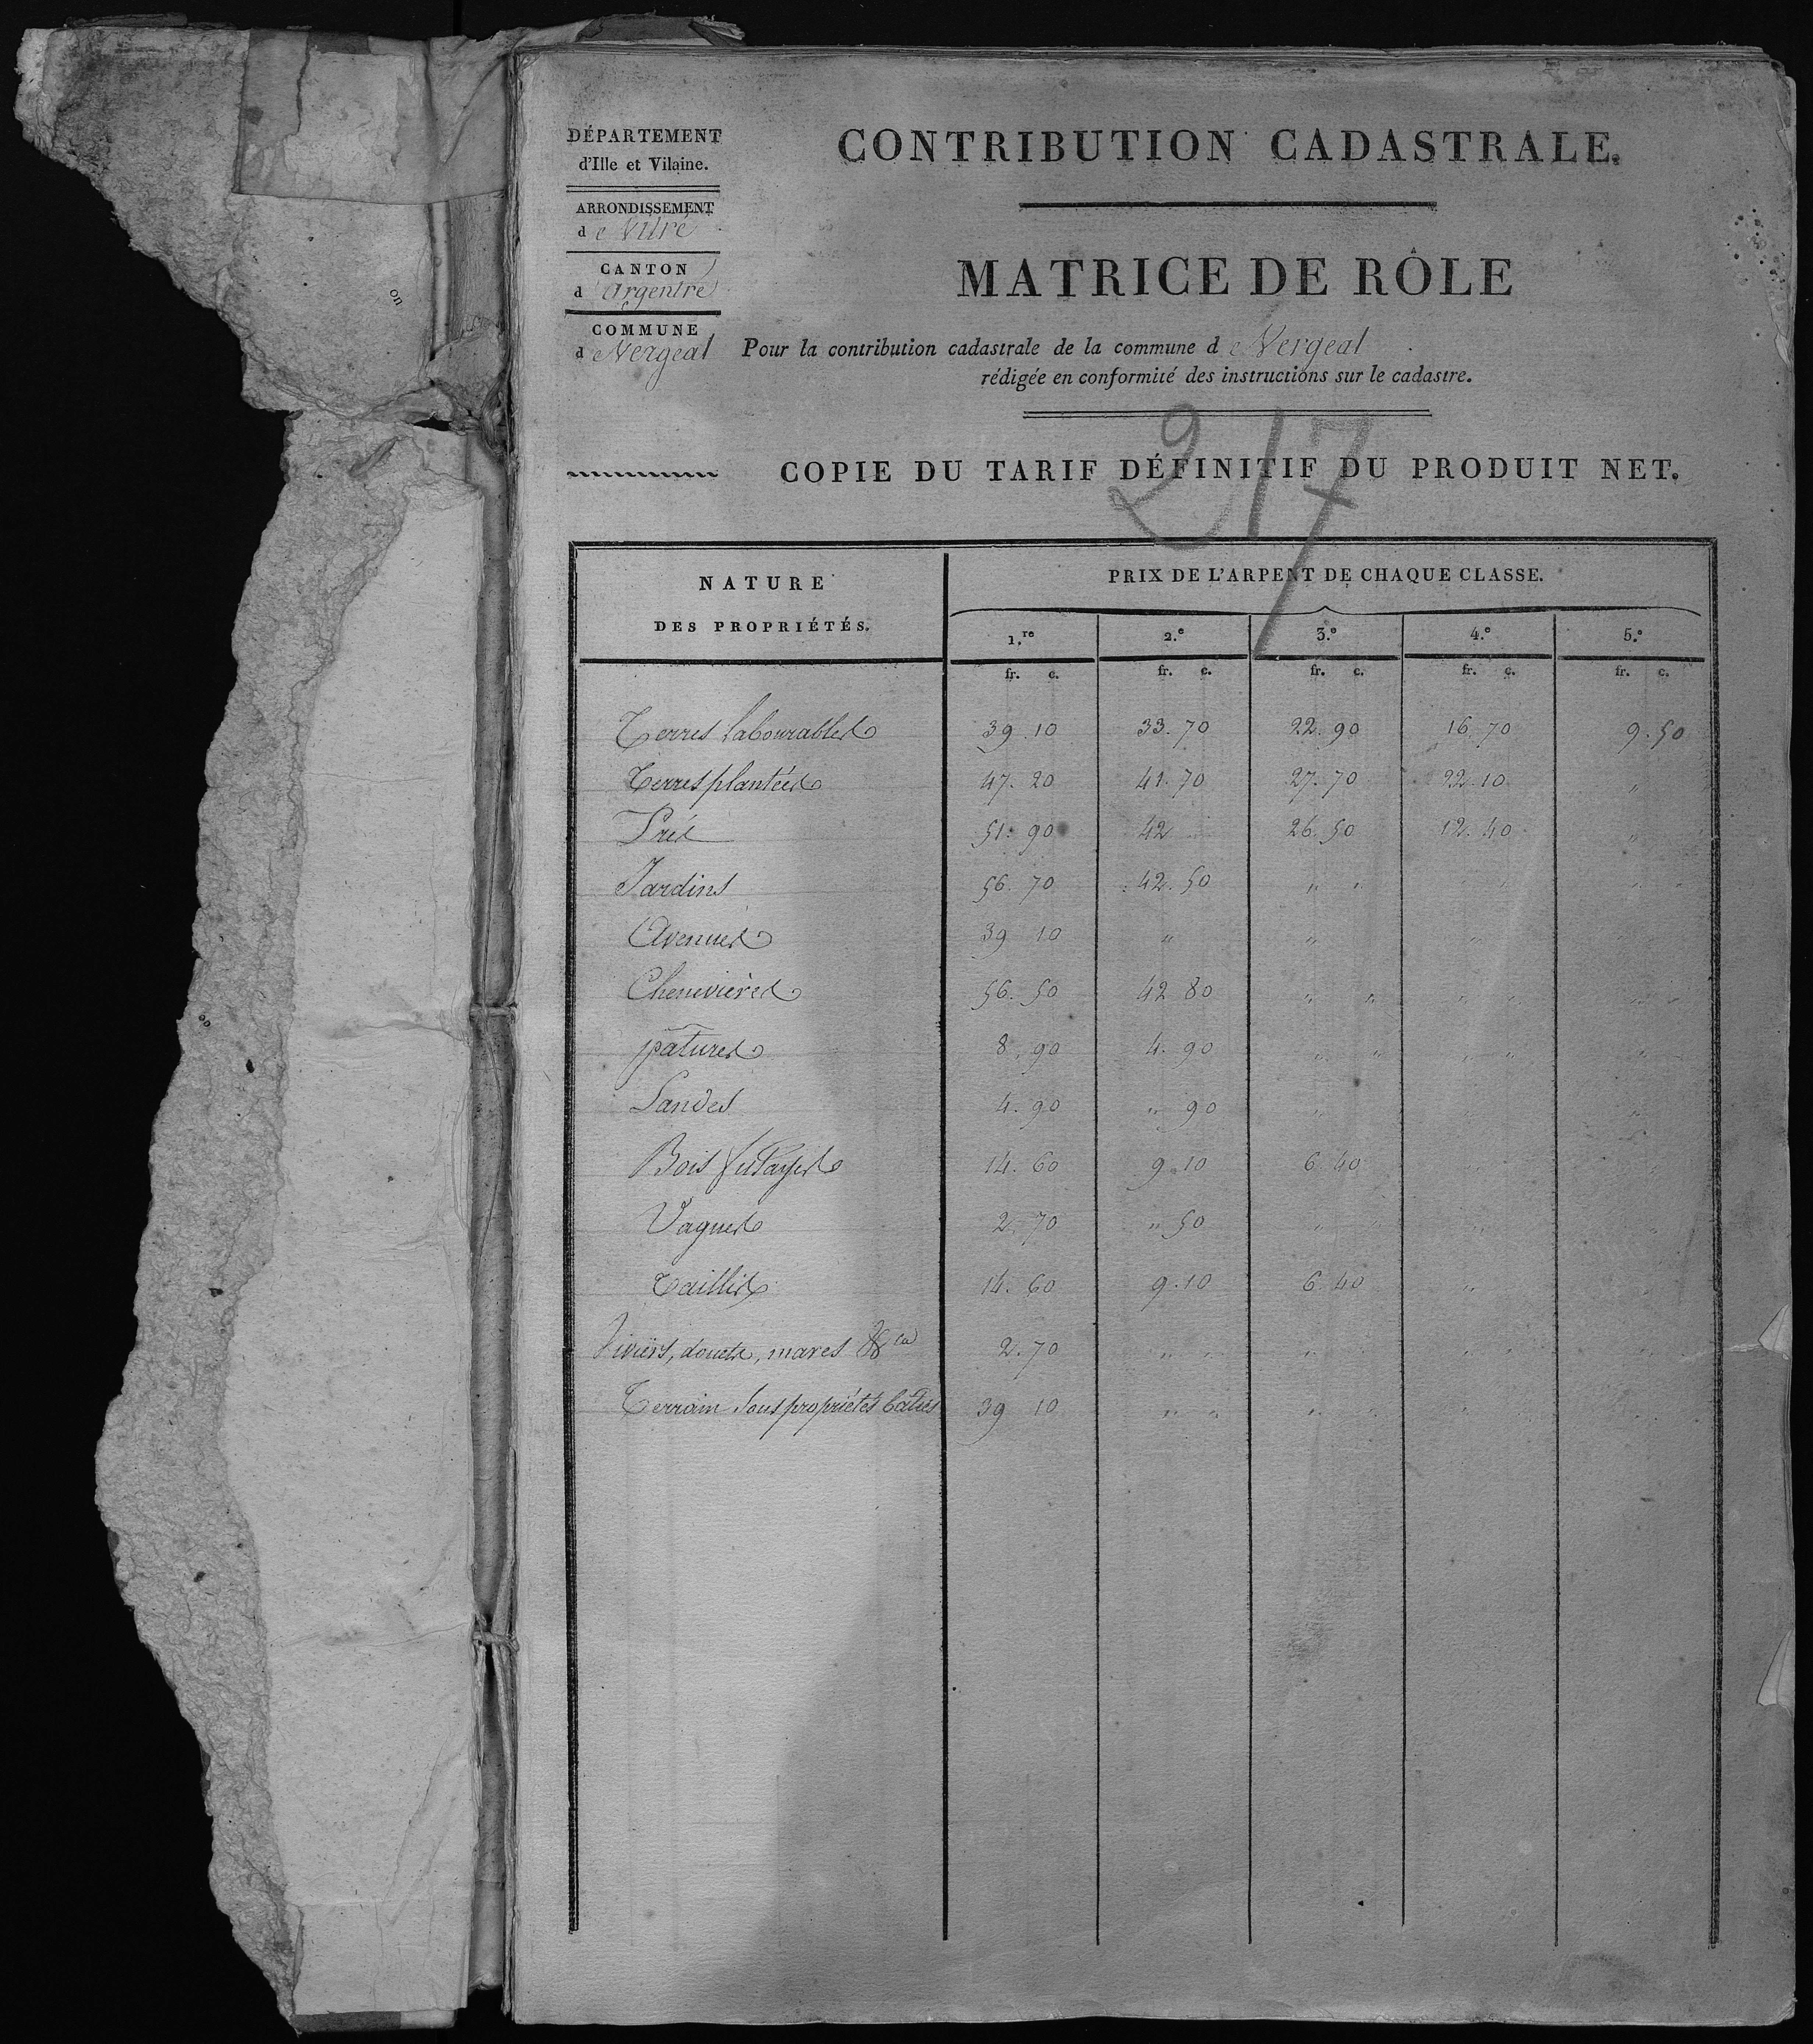 DÉPARTEMENT
d'Ille et Vilaine.
ARRONDISSEMENT
de Vitré
CANTON
d'Argentré
COMMUNE
de Vergeal
CONTRIBUTION CADASTRALE.
MATRICE DE RÔLE
Pour la contribution cadastrale de la commune de Vergeal
rédigée en conformité des instructions sur le cadastre.
217
COPIE DU TARIF DÉFINITIF DU PRODUIT NET.
NATURE
DES PROPRIÉTÉS.
PRIX DE L'ARPENT DE CHAQUE CLASSE.
1.re 2.e 3.e 4.e 5.e
fr. c. fr. c. fr. c. fr. c. fr. c.
Terres labourables 39. 10 33. 70 22. 90 16. 70 9. 50
Terres plantées 47. 20 41. 70 27. 70 22. 10 "
Prés 51. 90 42 26. 50 12. 40 "
Jardins 56. 70 42. 50 " " " " " "
Avenues 39 10 " " " "
Chenevières 56. 50 42 80 " " " " " "
patures 8. 90 4. 90 " " " " "
Landes 4. 90 " 90 " " "
Bois futayes 14. 60 9. 10 6. 40 " "
Vagues 2. 70 " 50 " " "
Taillis 14. 60 9. 10 6. 40 " "
Viviers, douets, mares &ca 2. 70 " " " " "
Terrain sous propriétés baties 39 10 " " " " "
on